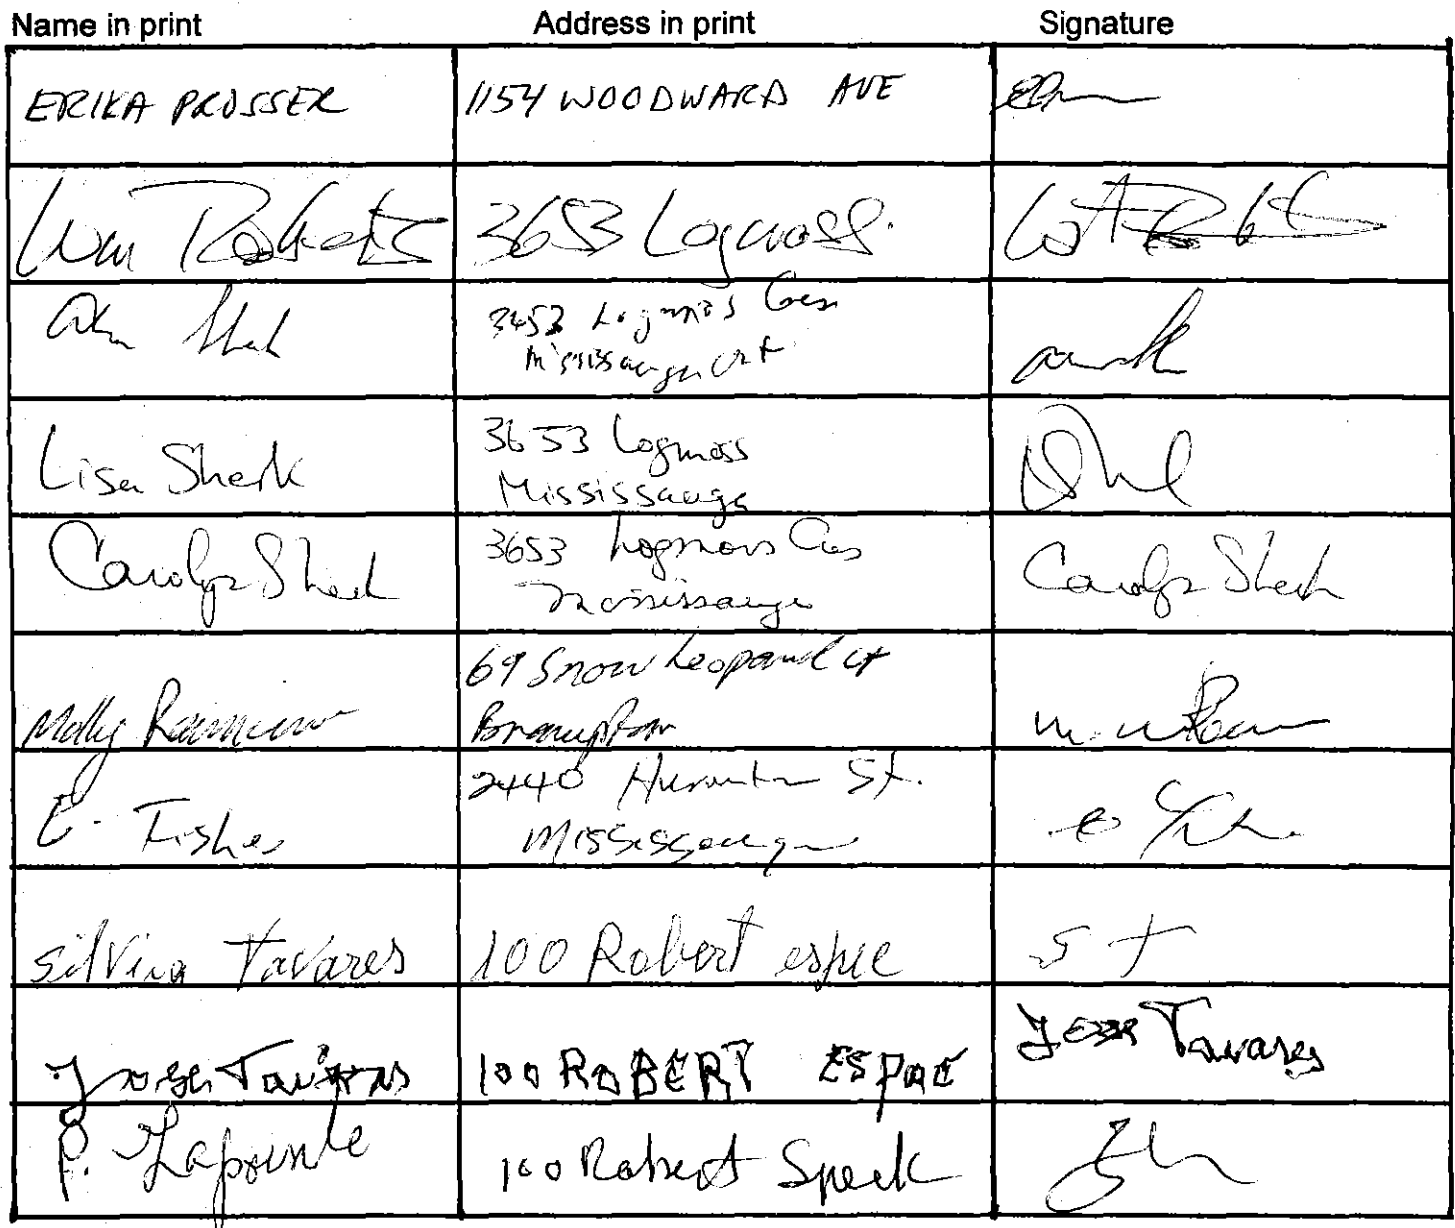 Name in print Address in print Signature
ERIKA PROSSER 1154 WOODWARD AVE
Wm Roberts 3653 Logmoss.
3453 Logmoss Cres
Mississauga Ont
Lisa Sherk 3653 Logmoss
Mississauga
Carolyn Sherk 3653 Logmoss Cres Carolyn Sherk
Mississauga
69 Snow Leopard ct
Molly Brampton
2440 St.
E. Fisher Mississauga
Silvina Tavares 100 Robert espec S T
Tavares 100 ROBERT ESPAC Tavares
P. Lapointe 100 Robert Speck